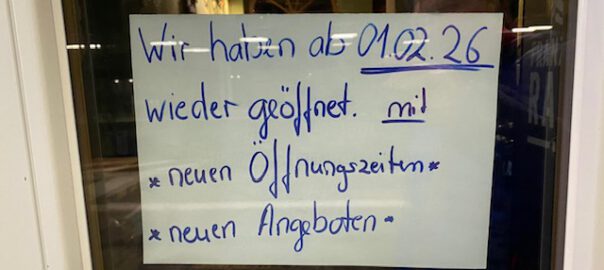 Wir haben ab 01.02.26
wieder geöffnet. mit
* neuen Öffnungszeiten *
* neuen Angeboten *